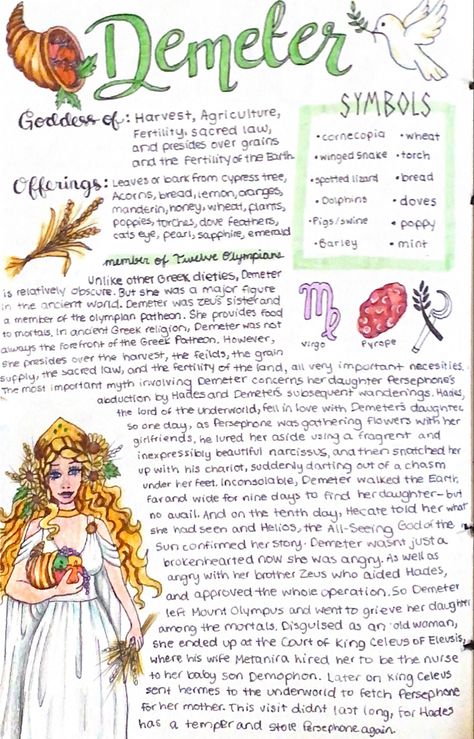 Demeter
Goddess of: Harvest, Agriculture,
Fertility, sacred law,
and presides over grains
and the Fertility of the Earth
Offerings: Leaves or bark from cypress tree,
Acorns, bread, lemon, oranges,
manderin, honey, wheat, plants,
poppies, torches, dove feathers,
cats eye, pearl, sapphire, emerald
SYMBOLS
• cornecopia • wheat
• winged snake • torch
• spotted lizard • bread
• Dolphins • doves
• Pigs/swine • poppy
• Barley • mint
member of Twelve Olympians
Virgo
Pyrope
Unlike other Greek dieties, Demeter
is relatively obscure. But she was a major figure
in the ancient world. Demeter was zeus' sister and
a member of the olympian patheon. She provides food
to mortals. In ancient Greek religion, Demeter was not
always the forefront of the Greek Patreon. However,
she presides over the harvest, the feilds, the grain
supply, the sacred law, and the fertility of the land, all very important necesities.
The most important myth involving Demeter concerns her daughter Persephone's
abduction by Hades and Demeter's subsequent wanderings. Hades,
the lord of the underworld, fell in love with Demeter's daughter
so one day, as Persephone was gathering flowers with her
girlfriends, he lured her aside using a fragrent and
inexpressibly beautiful narcissus, and then snatched her
up with his chariot, suddenly darting out of a chasm
under her feet. Inconsolable, Demeter walked the Earth
far and wide for nine days to find her daughter- but
no avail. And on the tenth day, Hecate told her what
she had seen and Helios, the All-Seeing God of the
Sun confirmed her story. Demeter wasnt just a
brokenhearted now she was angry. As well as
angry with her brother Zeus who aided Hades,
and approved the whole operation. So Demeter
left Mount Olympus and went to grieve her daughter
among the mortals. Disguised as an old woman,
she ended up at the Court of King Celeus of Eleusis,
where his wife Metanira hired her to be the nurse
to her baby son Demophon. Later on King Celeus
sent hermes to the underworld to fetch Persephone
for her mother. This visit didnt last long, for Hades
has a temper and stole Persephone again.